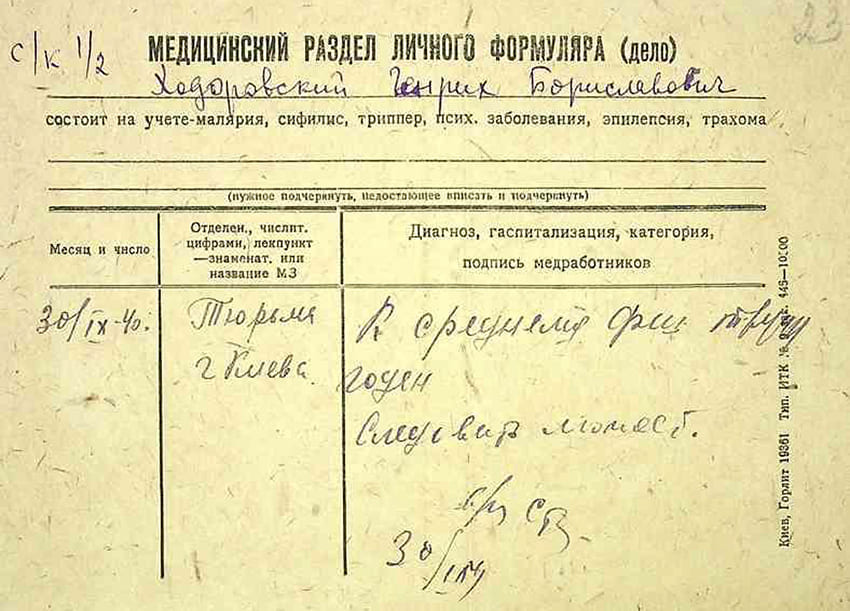 23
С/К 1/2
МЕДИЦИНСКИЙ РАЗДЕЛ ЛИЧНОГО ФОРМУЛЯРА (дело)
Ходоровский Генрих Бориславович
состоит на учете-малярия, сифилис, триппер, псих. заболевания, эпилепсия, трахома
(нужное подчеркнуть, недостающее вписать и подчеркнуть)
Месяц и число
Отделен., числит.
цифрами, лекпункт
—знаменат. или
название МЗ
Диагноз, гаспитализация, категория,
подпись медработников
30/IX-40.
Тюрьма
г Киева.
К среднему физ труду
годен
Следовать может.
30/IX
Киев, Горлит 19361 Тип. ИТК № 445—10000